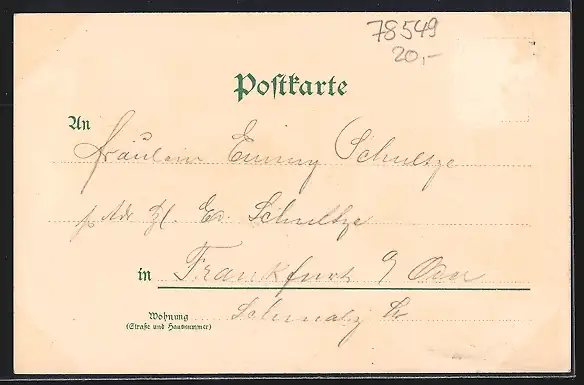 78549
20,-
Postkarte
An
Fräulein Emmy Schultze
p. Adr. Schultze
in Frankfurt Oder
Wohnung
(Straße und Hausnummer)